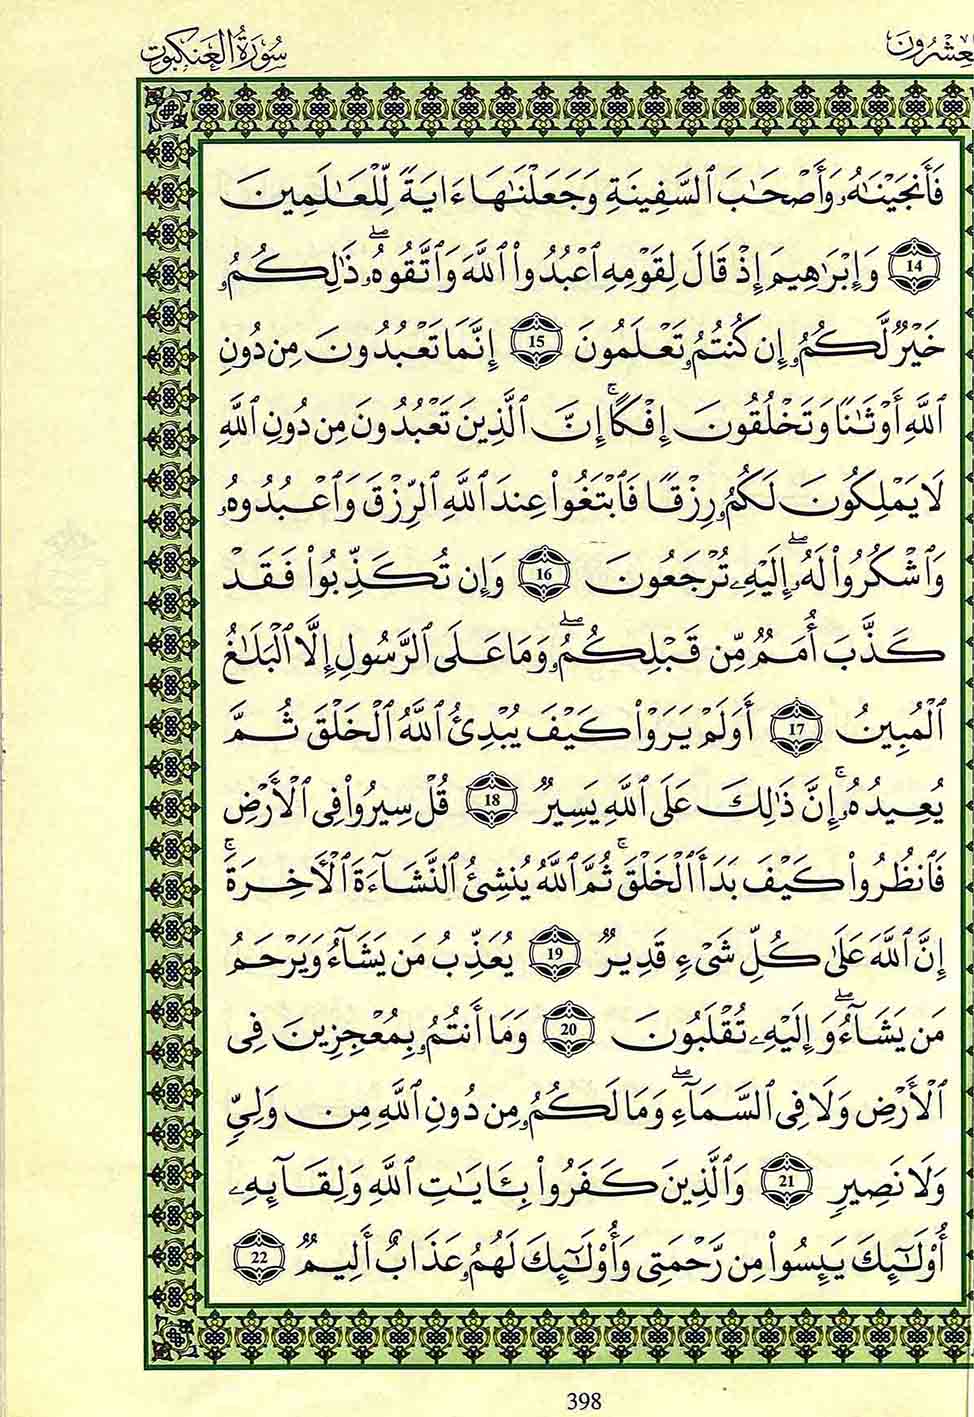 لعشرون
سورة العنكبوت
فَأَنجَيْنَٰهُۥ وَأَصْحَٰبَ ٱلسَّفِينَةِ وَجَعَلْنَٰهَا ءَايَةً لِّلْعَٰلَمِينَ
14 وَإِبْرَٰهِيمَ إِذْ قَالَ لِقَوْمِهِ ٱعْبُدُوا۟ ٱللَّهَ وَٱتَّقُوهُۥۖ ذَٰلِكُمُۥ
خَيْرٌ لَّكُمُۥ إِن كُنتُمُۥ تَعْلَمُونَ 15 إِنَّمَا تَعْبُدُونَ مِن دُونِ
ٱللَّهِ أَوْثَٰنًا وَتَخْلُقُونَ إِفْكًاۚ إِنَّ ٱلَّذِينَ تَعْبُدُونَ مِن دُونِ ٱللَّهِ
لَا يَمْلِكُونَ لَكُمُۥ رِزْقًا فَٱبْتَغُوا۟ عِندَ ٱللَّهِ ٱلرِّزْقَ وَٱعْبُدُوهُۥ
وَٱشْكُرُوا۟ لَهُۥۖ إِلَيْهِۦ تُرْجَعُونَ 16 وَإِن تُكَذِّبُوا۟ فَقَدْ
كَذَّبَ أُمَمٌ مِّن قَبْلِكُمُۥۖ وَمَا عَلَى ٱلرَّسُولِ إِلَّا ٱلْبَلَٰغُ
ٱلْمُبِينُ 17 أَوَلَمْ يَرَوْا۟ كَيْفَ يُبْدِئُ ٱللَّهُ ٱلْخَلْقَ ثُمَّ
يُعِيدُهُۥۚ إِنَّ ذَٰلِكَ عَلَى ٱللَّهِ يَسِيرٌ 18 قُلْ سِيرُوا۟ فِى ٱلْأَرْضِ
فَٱنظُرُوا۟ كَيْفَ بَدَأَ ٱلْخَلْقَۚ ثُمَّ ٱللَّهُ يُنشِئُ ٱلنَّشَآءَةَ ٱلْأَخِرَةَۚ
إِنَّ ٱللَّهَ عَلَىٰ كُلِّ شَىْءٍ قَدِيرٌ 19 يُعَذِّبُ مَن يَشَآءُ وَيَرْحَمُ
مَن يَشَآءُۖ وَإِلَيْهِۦ تُقْلَبُونَ 20 وَمَا أَنتُمُۥ بِمُعْجِزِينَ فِى
ٱلْأَرْضِ وَلَا فِى ٱلسَّمَآءِۖ وَمَا لَكُمُۥ مِن دُونِ ٱللَّهِ مِن وَلِىٍّ
وَلَا نَصِيرٍ 21 وَٱلَّذِينَ كَفَرُوا۟ بِـَٔايَٰتِ ٱللَّهِ وَلِقَآئِهِۦ
أُو۟لَٰٓئِكَ يَئِسُوا۟ مِن رَّحْمَتِى وَأُو۟لَٰٓئِكَ لَهُمُۥ عَذَابٌ أَلِيمٌ 22
398